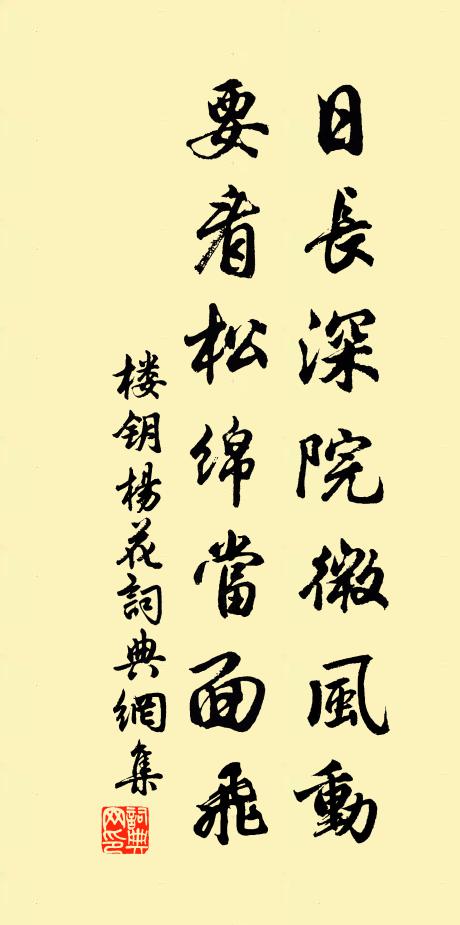 日長深院微風動
要看松綿當面飛
楼钥楊花詞典網集
詞典
网印